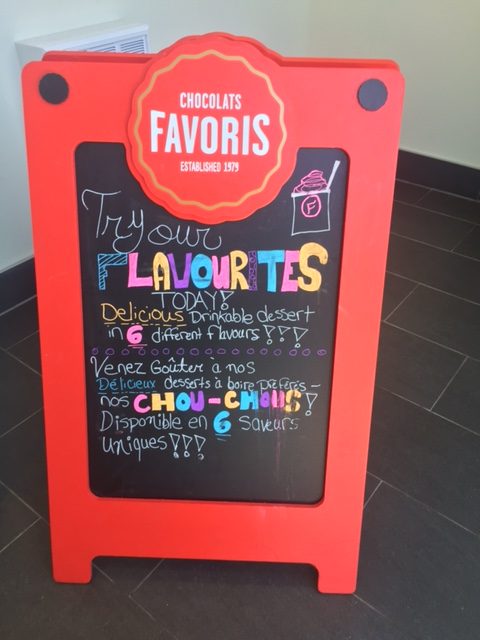 CHOCOLATS
FAVORIS
ESTABLISHED 1979
F
Try our
FLAVOURITES
TODAY!
Delicious Drinkable dessert
in 6 different flavours!!!
Venez Goûter à nos
Délicieux desserts à boire préférés -
nos CHOU-CHOUS!
Disponible en 6 saveurs
uniques!!!